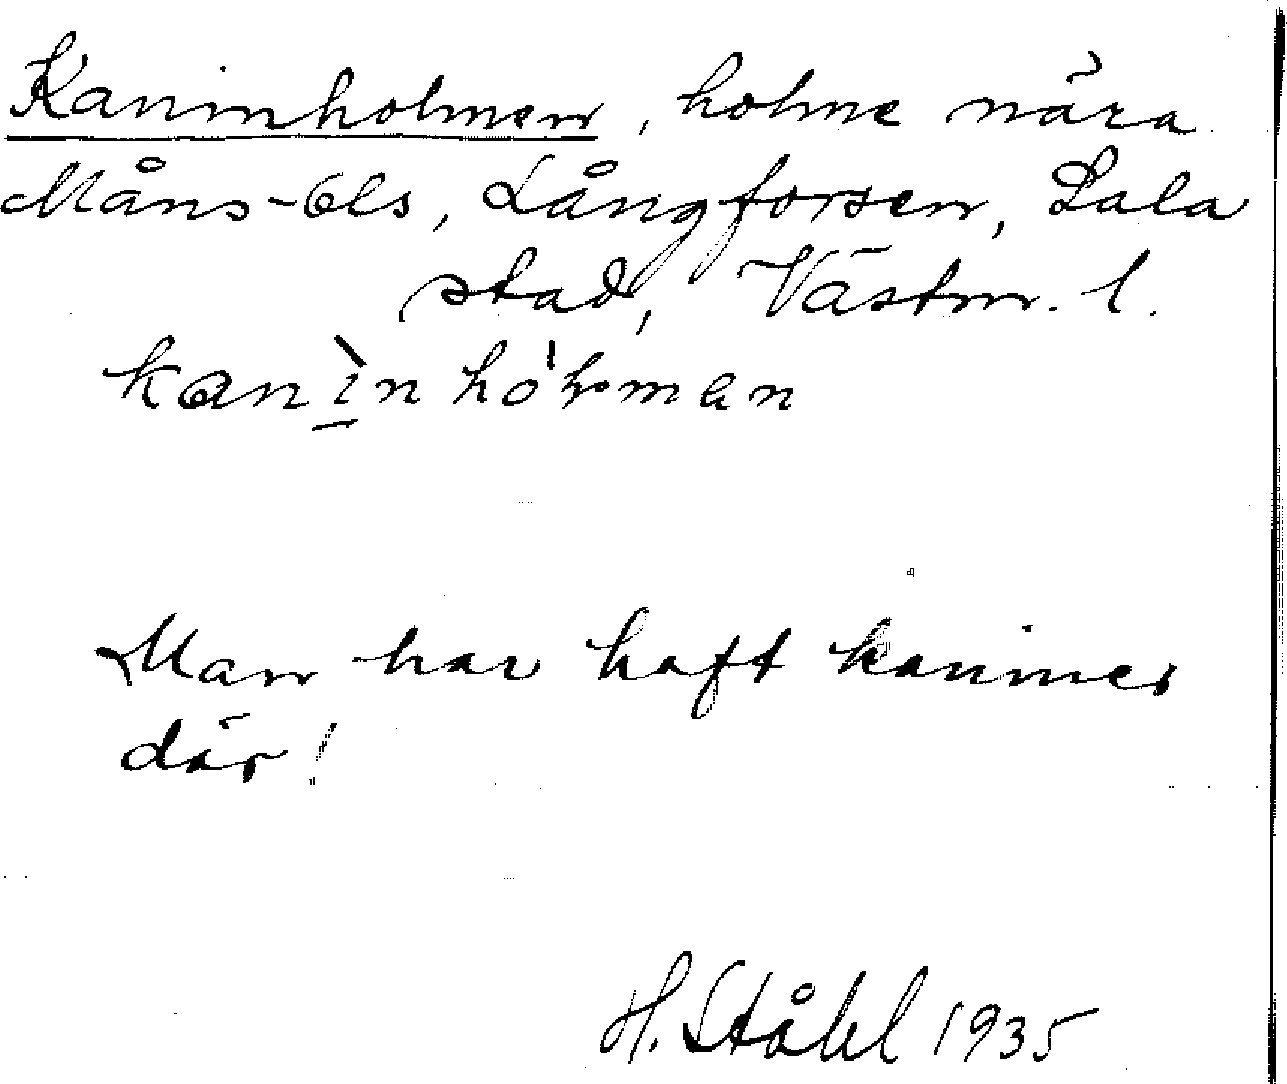 Kaninholmen, holme nära
Måns-Ols, Långforsen, Sala
stad, Västm. l.
kanìn hó'lmɐn
Man har haft kaniner
där!
H. Ståhl 1935